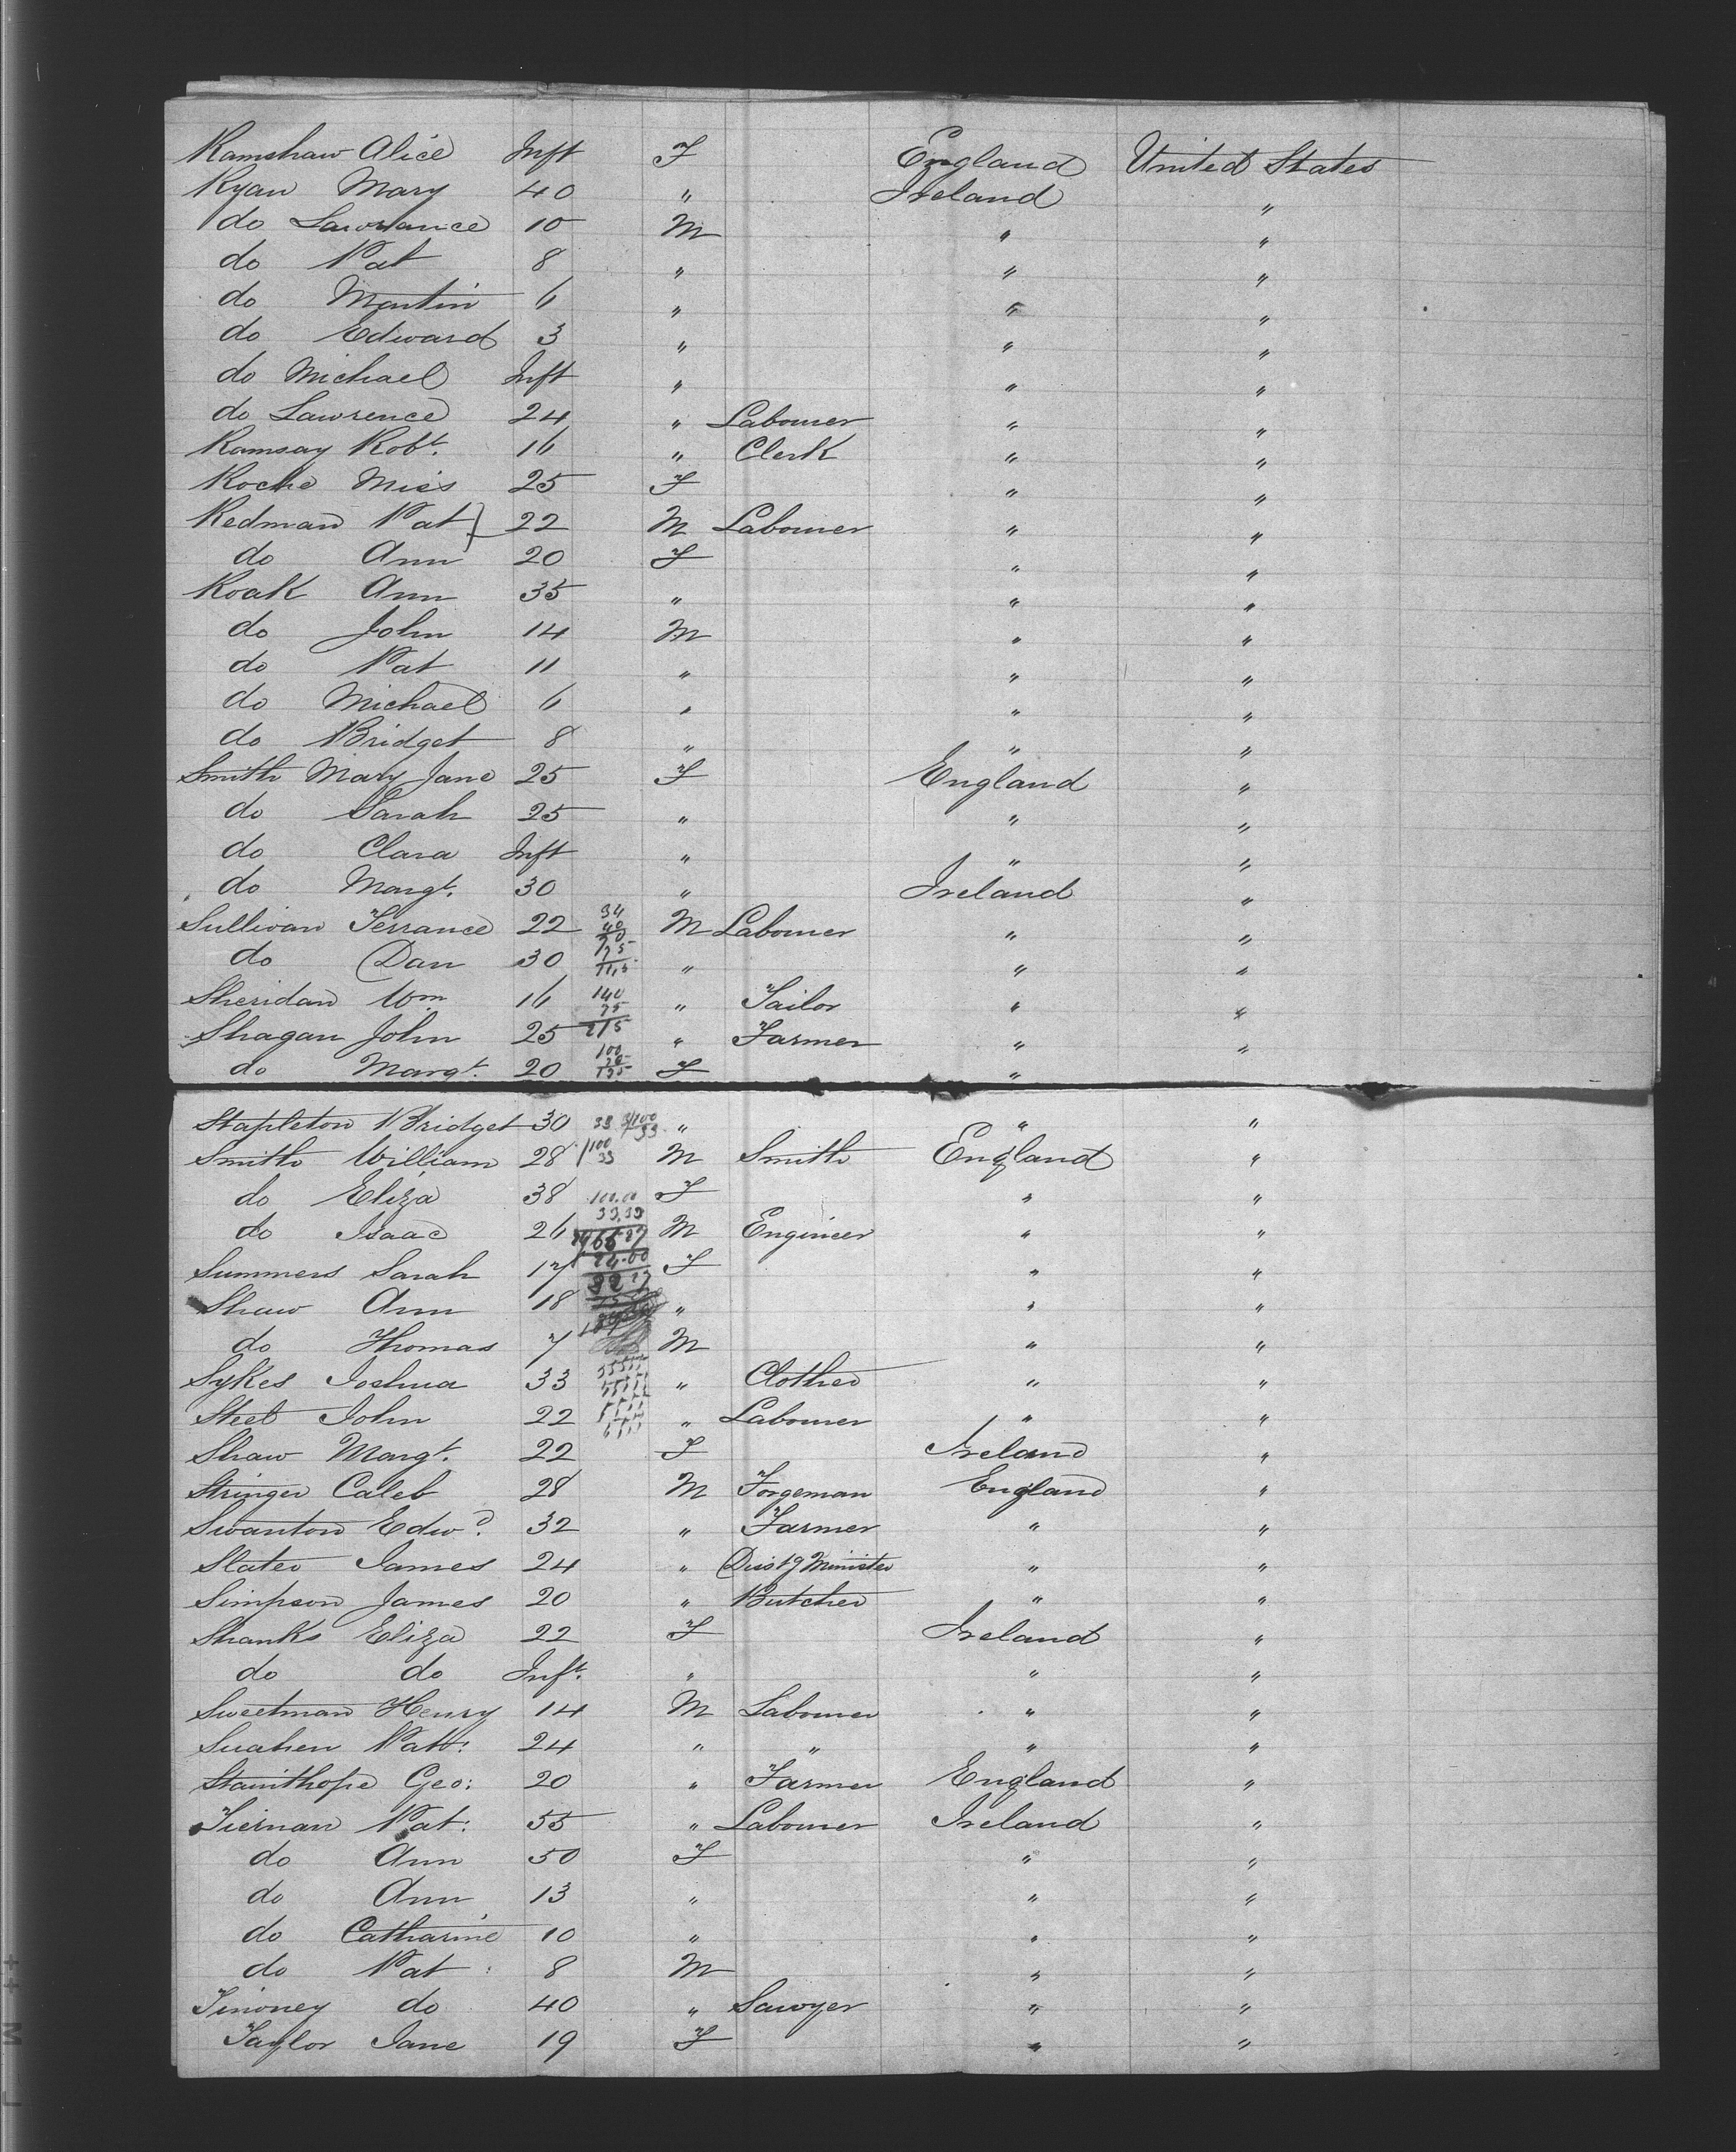 Ramshaw Alice Inft F England United States
Ryan Mary 40 " Ireland "
do Lawrance 10 M " "
do Pat 8 " " "
do Martin 6 " " "
do Edward 3 " " "
do Michael Inft " " "
do Lawrence 24 " Labourer " "
Ramsay Robt. 16 " Clerk " "
Roche Miss 25 F " "
Redman Pat 22 M Labourer " "
do Ann 20 F " "
Roak Ann 35 " " "
do John 14 M " "
do Pat 11 " " "
do Michael 6 " " "
do Bridget 8 " " "
Smith Mary Jane 25 F England "
do Sarah 25 " " "
do Clara Inft " " "
do Margt. 30 " Ireland "
Sullivan Terrance 22 M Labourer " "
do Dan 30 " " "
Sheridan Wm 16 140 " Tailor " "
75
Shagan John 25 215 " Farmer " "
100
do Margt. 20 F "
Stapleton Bridget 30 33 " " "
Smith William 28 100 M Smith England "
33
do Eliza 38 100.00 F " "
33.33
do Isaac 26 M Engineer " "
Summers Sarah 17 F " "
Shaw Ann 18 " " "
do Thomas 7 M " "
Sykes Joshua 33 " Clothier " "
Steel John 22 " Labourer " "
Shaw Margt. 22 F Ireland "
Stringer Caleb 28 M Forgeman England "
Swanton Edwd. 32 " Farmer " "
Slater James 24 " Disstg Minister " "
Simpson James 20 " Butcher " "
Shanks Eliza 22 F Ireland "
do do Inft. " " "
Sweetman Henry 14 M Labourer " "
Suahen Patt: 24 " " " "
Stainthope Geo: 20 " Farmer England "
Tiernan Pat: 55 " Labourer Ireland "
do Ann 50 F " "
do Ann 13 " " "
do Catharine 10 " " "
do Pat: 8 M " "
Timoney do 40 " Sawyer " "
Taylor Jane 19 F " "